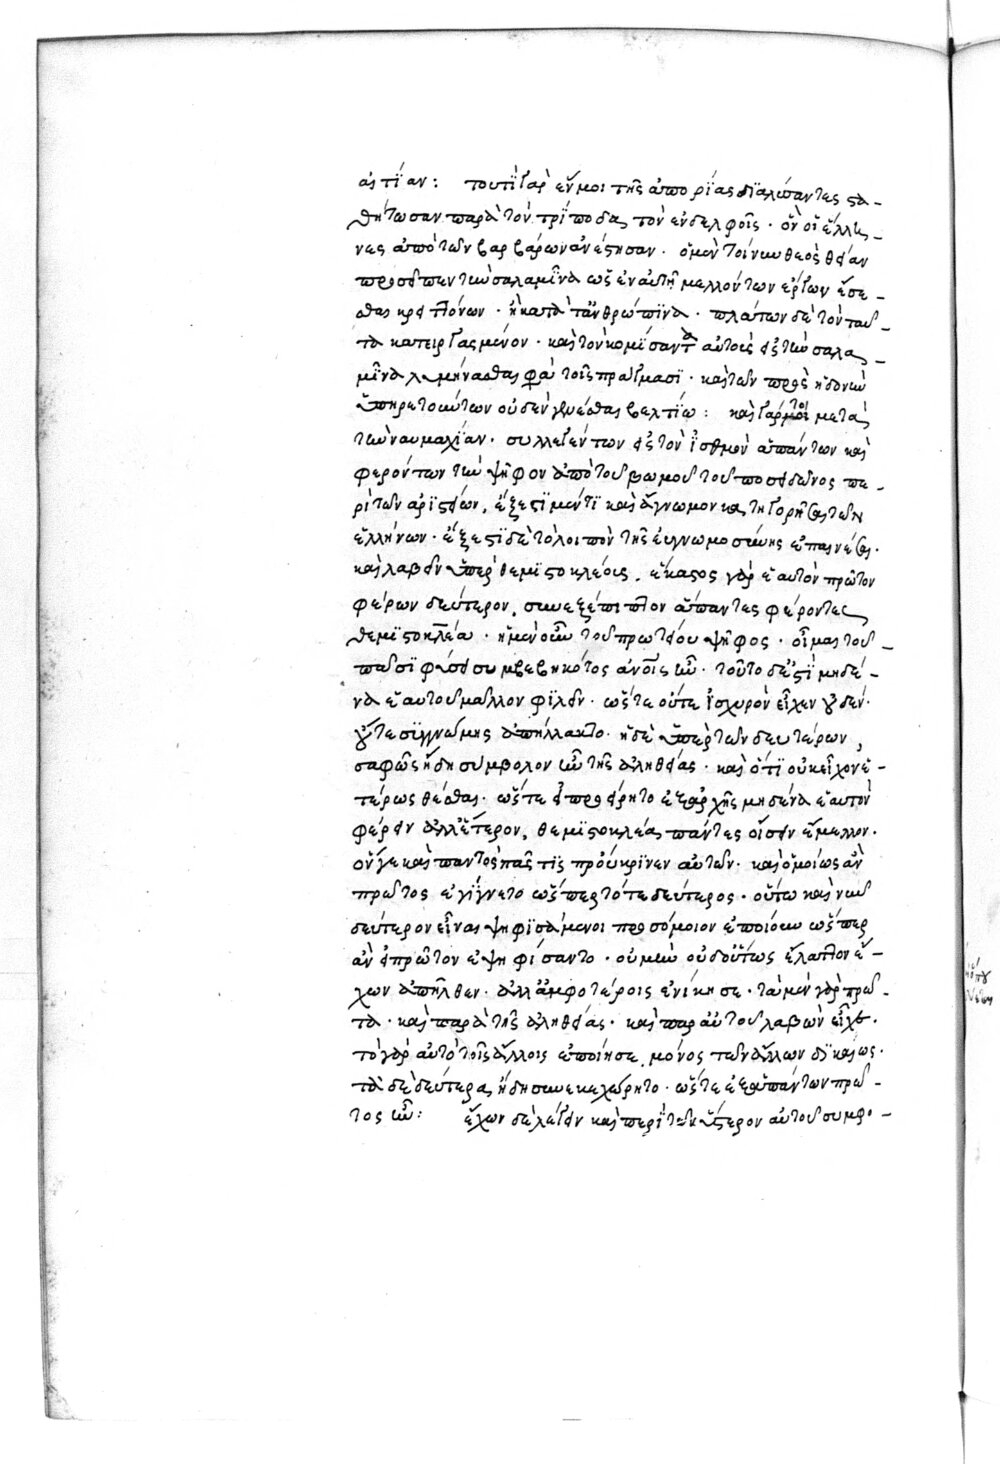 αιτΐαν : τουτὶ γὰρ εὖ μοι τῆς ἀπορίας διαλύσαντες στα-
θήτωσαν παρὰ τὸν τρίποδα, τὸν ἐν δελφοῖς · ὃν οἱ ἕλλη-
νες ἀπὸ τῶν βαρβάρων ἀνέστησαν · ὁ μὲν τοίνυν θεὸς θείαν
προσειπὼν τὴν σαλαμῖνα ὡς ἐν αὐτῇ μελλόντων ἔργων ἔσε-
σθαι κρειττόνων · ἢ κατὰ τἀνθρώπινα · πλάτων δὲ τὸν ταῦ-
τα κατειργασμένον · καὶ τὸν κομίσαντα αὐτοῖς ἐξ τὴν σαλα-
μῖνα λυμήνασθαι φὰ τοῖς πράγμασι · καὶ τῶν πρὸς ἡδονὴν
ὑπηρετούντων οὐδὲν γενέσθαι βελτίω : καὶ γάρ τοι μετὰ
τὴν ναυμαχίαν · συλλεγέντων εἰς τὸν ἰσθμὸν ἁπάντων καὶ
φερόντων τὴν ψῆφον ἀπὸ τοῦ βωμοῦ τοῦ ποσειδῶνος πε-
ρὶ τῶν ἀριστείων, ἔξεστι μέν τι καὶ ἄγνωμον κατηγορῆσαι τῶν
ἑλλήνων · ἔξεστι δὲ τὸ λοιπὸν τῆς εὐγνωμοσύνης ἐπαινέσαι ·
καὶ λαβεῖν ὑπὲρ θεμιστοκλέους, ἕκαστος γὰρ ἑαυτὸν πρῶτον
φέρων δεύτερον, συνεξέπιπτον ἅπαντες φέροντες
θεμιστοκλέα · ἡ μὲν οὖν τοῦ πρωτείου ψῆφος · οἶμαι τοῦ
πᾶσι φύσει συμβεβηκότος ἀνοίας ἦν · τοῦτο δέ ἐστι μηδέ-
να ἑαυτοῦ μᾶλλον φιλεῖν · ὥστε οὔτε ἰσχυρὸν εἶχεν οὐδέν ·
οὔτε συγγνώμης ἀπήλλακτο · ἡ δὲ ὑπὲρ τῶν δευτέρων,
σαφῶς ἤδη σύμβολον ἦν τῆς ἀληθείας · καὶ ὅτι οὐκ εἶχον ἑ-
τέρως θέσθαι · ὥστε εἰ προείρητο ἐξαρχῆς μηδένα ἑαυτὸν
φέρειν ἀλλ' ἕτερον, θεμιστοκλέα πάντες οἴσειν ἔμελλον ·
ὅν γε καὶ παντὸς πᾶς τις προύκρινεν αὐτῶν · καὶ ὁμοίως ἂν
πρῶτος ἐγίγνετο ὥσπερ τότε δεύτερος · οὕτω καὶ νῦν
δεύτερον εἶναι ψηφισάμενοι προσόμοιον ἐποίουν ὥσπερ
ἂν εἰ πρῶτον ἐψηφίσαντο · οὐ μὴν οὐδ' οὕτως ἔλαττον ἔ-
χων ἀπῆλθεν · ἀλλ' ἀμφοτέροις ἐνίκησε · τὰ μὲν γὰρ πρῶ-
τα · καὶ παρὰ τῆς ἀληθείας · καὶ παρ' αὑτοῦ λαβὼν εἶχε ·
τὸ γὰρ αὐτὸ τοῖς ἄλλοις ἐποίησε, μόνος τῶν ἄλλων δικαίως ·
τὰ δὲ δεύτερα, ἤδη συνεκεχώρητο · ὥστε ἐξ ἁπάντων πρῶ-
τος ἦν : ἔχων δὲ λέγειν καὶ περὶ τῶν ὕστερον αὐτοῦ συμφο-